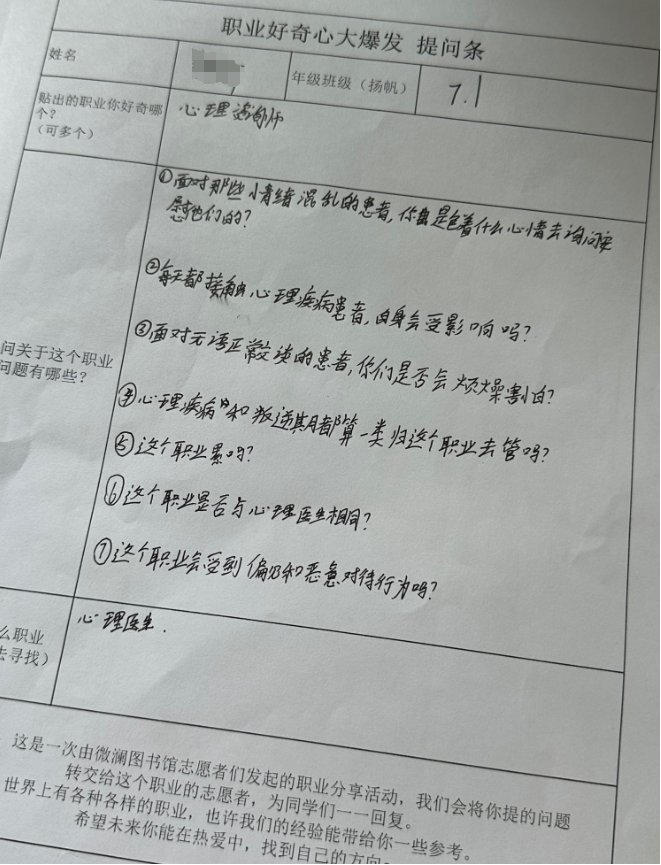 职业好奇心大爆发 提问条
姓名
年级班级（扬帆）
7.1
贴出的职业你好奇哪
个？
（可多个）
心理咨询师
①面对那些情绪混乱的患者，你是包着什么心情去询问安
慰他们的？
②每天都接触心理疾病患者，自身会受影响吗？
③面对无法正常交谈的患者，你们是否会烦燥
④心理疾病和叛逆期都算一类归这个职业去管吗？
⑤这个职业累吗？
⑥这个职业是否与心理医生相同？
⑦这个职业会受到偏见和恶意对待行为吗？
问关于这个职业
问题有哪些？
么职业
去寻找）
心理医生.
这是一次由微澜图书馆志愿者们发起的职业分享活动，我们会将你提的问题
转交给这个职业的志愿者，为同学们一一回复。
世界上有各种各样的职业，也许我们的经验能带给你一些参考。
希望未来你能在热爱中，找到自己的方向。